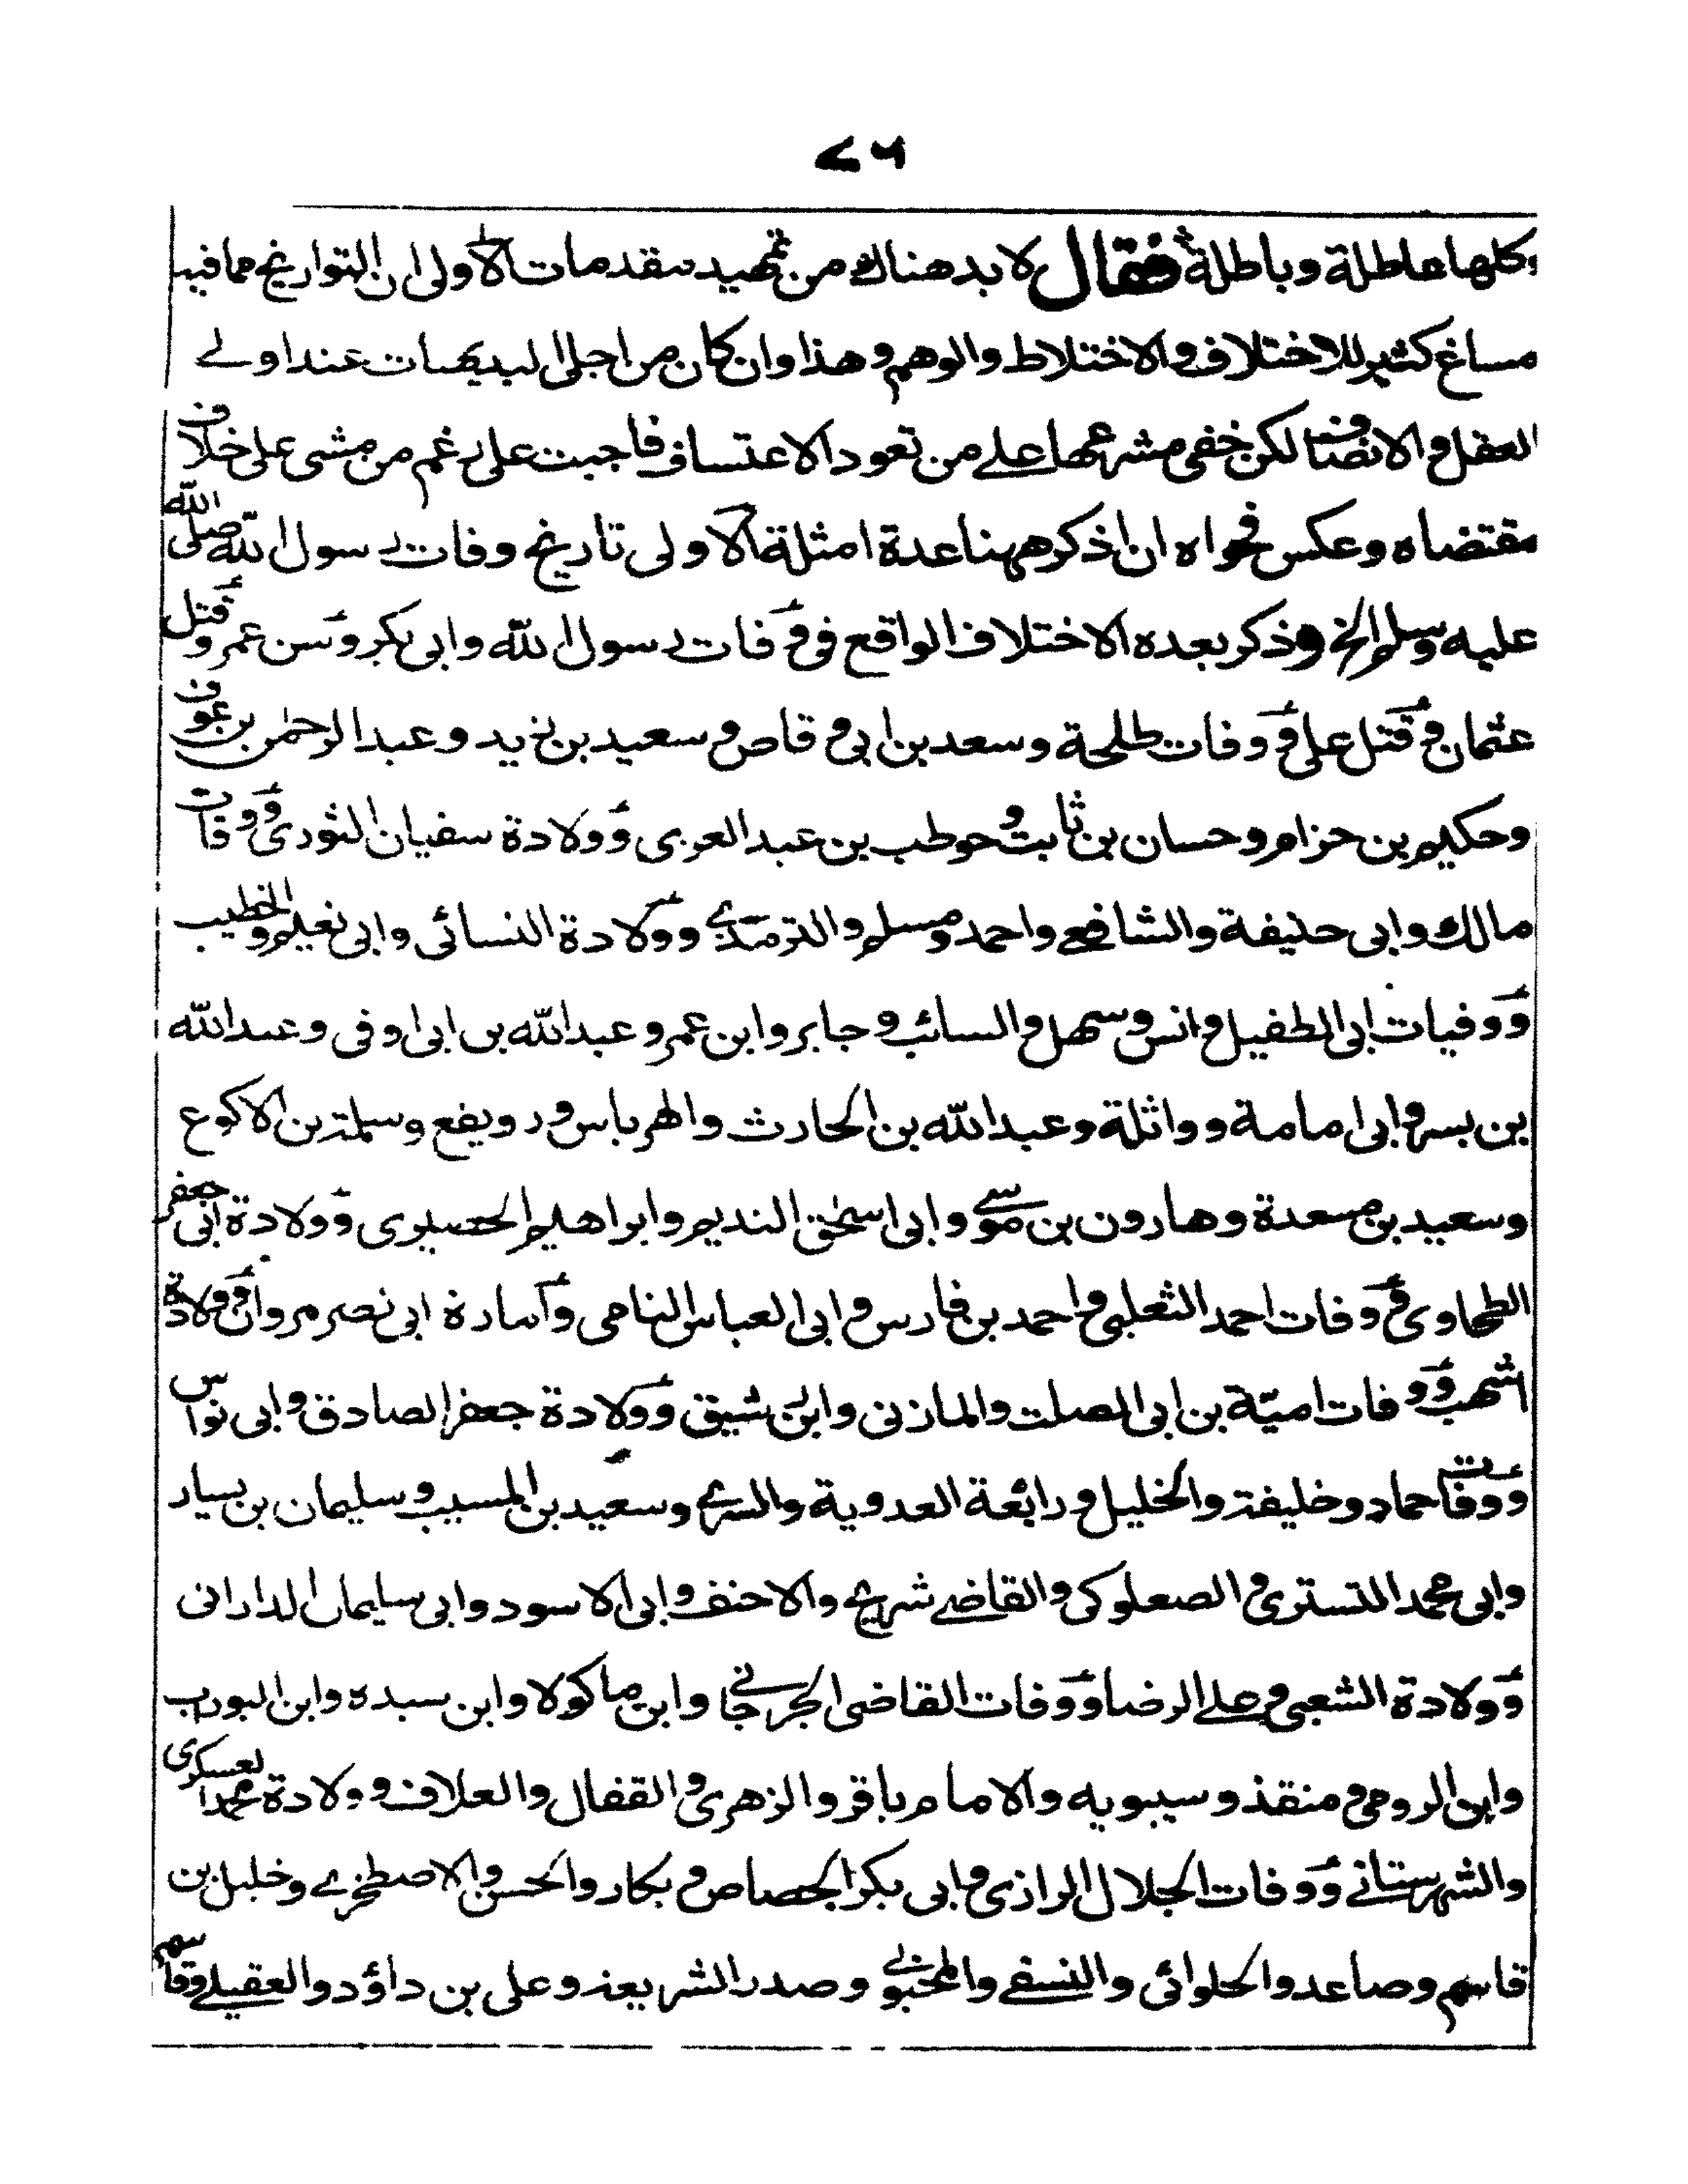 ٧٦
وكلها عاطلة وباطلة ثم قال لا بد هناك من تمهيد مقدمات الاولى ان التواريخ مما فيه
مساغ كثير للاختلاف والاختلاط والوهم وهذا وان كان من اجلى البديهيات عند اولے
العقل والانصاف لكن خفى مشرعها علے من تعود الاعتساف فاجبت على رغم من مشى على خلاف
مقتضاه وعكس فحواه ان اذكر ههنا عدة امثلة الاولى تاريخ وفات رسول الله صلى الله
عليه وسلم الخ وذكر بعده الاختلاف الواقع فى وفات رسول الله وابى بكر وسن عمر وقتل
عثمان وقتل على ووفات طلحة وسعد بن ابى وقاص وسعيد بن زيد وعبد الرحمٰن بن عوف
وحكيم بن حزام وحسان بن ثابت وحوطب بن عبد العزى وولادة سفيان الثورى ووفات
مالك وابى حنيفة والشافعے واحمد ومسلم والترمذے وولادة النسائى وابى نعيم والخطيب
ووفيات ابى الطفيل وانس وسهل والسائب وجابر وابن عمر وعبد الله بن ابى اوفى وعبد الله
بن بسر وابى امامة وواثلة وعبد الله بن الحارث والهرباس ورويفع وسلمة بن الاكوع
وسعيد بن مسعدة وهارون بن موسے وابى اسحٰق النديم وابراهيم الحصيرى وولادة ابى جعفر
الطحاوى ووفات احمد الثعلبى واحمد بن فارس وابى العباس النامى و ابى نصر مروان وولادة
اشهب ووفات اميّة بن ابى الصلت والمازنى وابن شيق وولادة جعفر الصادق وابى نواس
ووفات حماد وخليفة والخليل ورابعة العدوية والسرے وسعيد بن المسيب وسليمان بن يسار
وابى محمد التسترى والصعلوكى والقاضے شريح والاحنف وابى الاسود وابى سليمان الدارانى
وولادة الشعبى وعلے الرضا ووفات القاضى الجرجانے وابن ماكولا وابن سيده وابن البوب
وابن الرومى ومنقذ وسيبويه والامام باقر والزهرى والقفال والعلاف وولادة محمد العسكرى
والشهرستانے ووفات الجلال الرازى وابى بكر الجصاص وبكار والحسن والاصطخرے وخليل بن
قاسم وصاعد والحلوائى والنسفے والمحبوبے وصدر الشريعة وعلى بن داؤد والعقيلے وقاسم